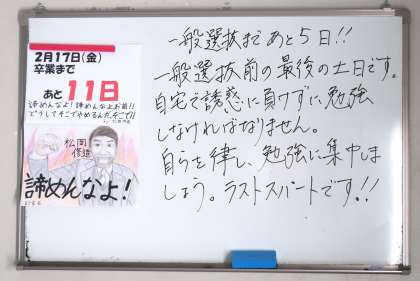 2月17日(金)
卒業まで
あと11日
諦めんなよ!諦めんなよお前!!
どうしてそこでやめるんだ、そこで!!
松岡
修造
諦めんなよ!
一般選抜まであと5日!!
一般選抜前の最後の土日です。
自宅で誘惑に負けずに、勉強
しなければなりません。
自らを律し、勉強に集中しま
しょう。ラストスパートです!!